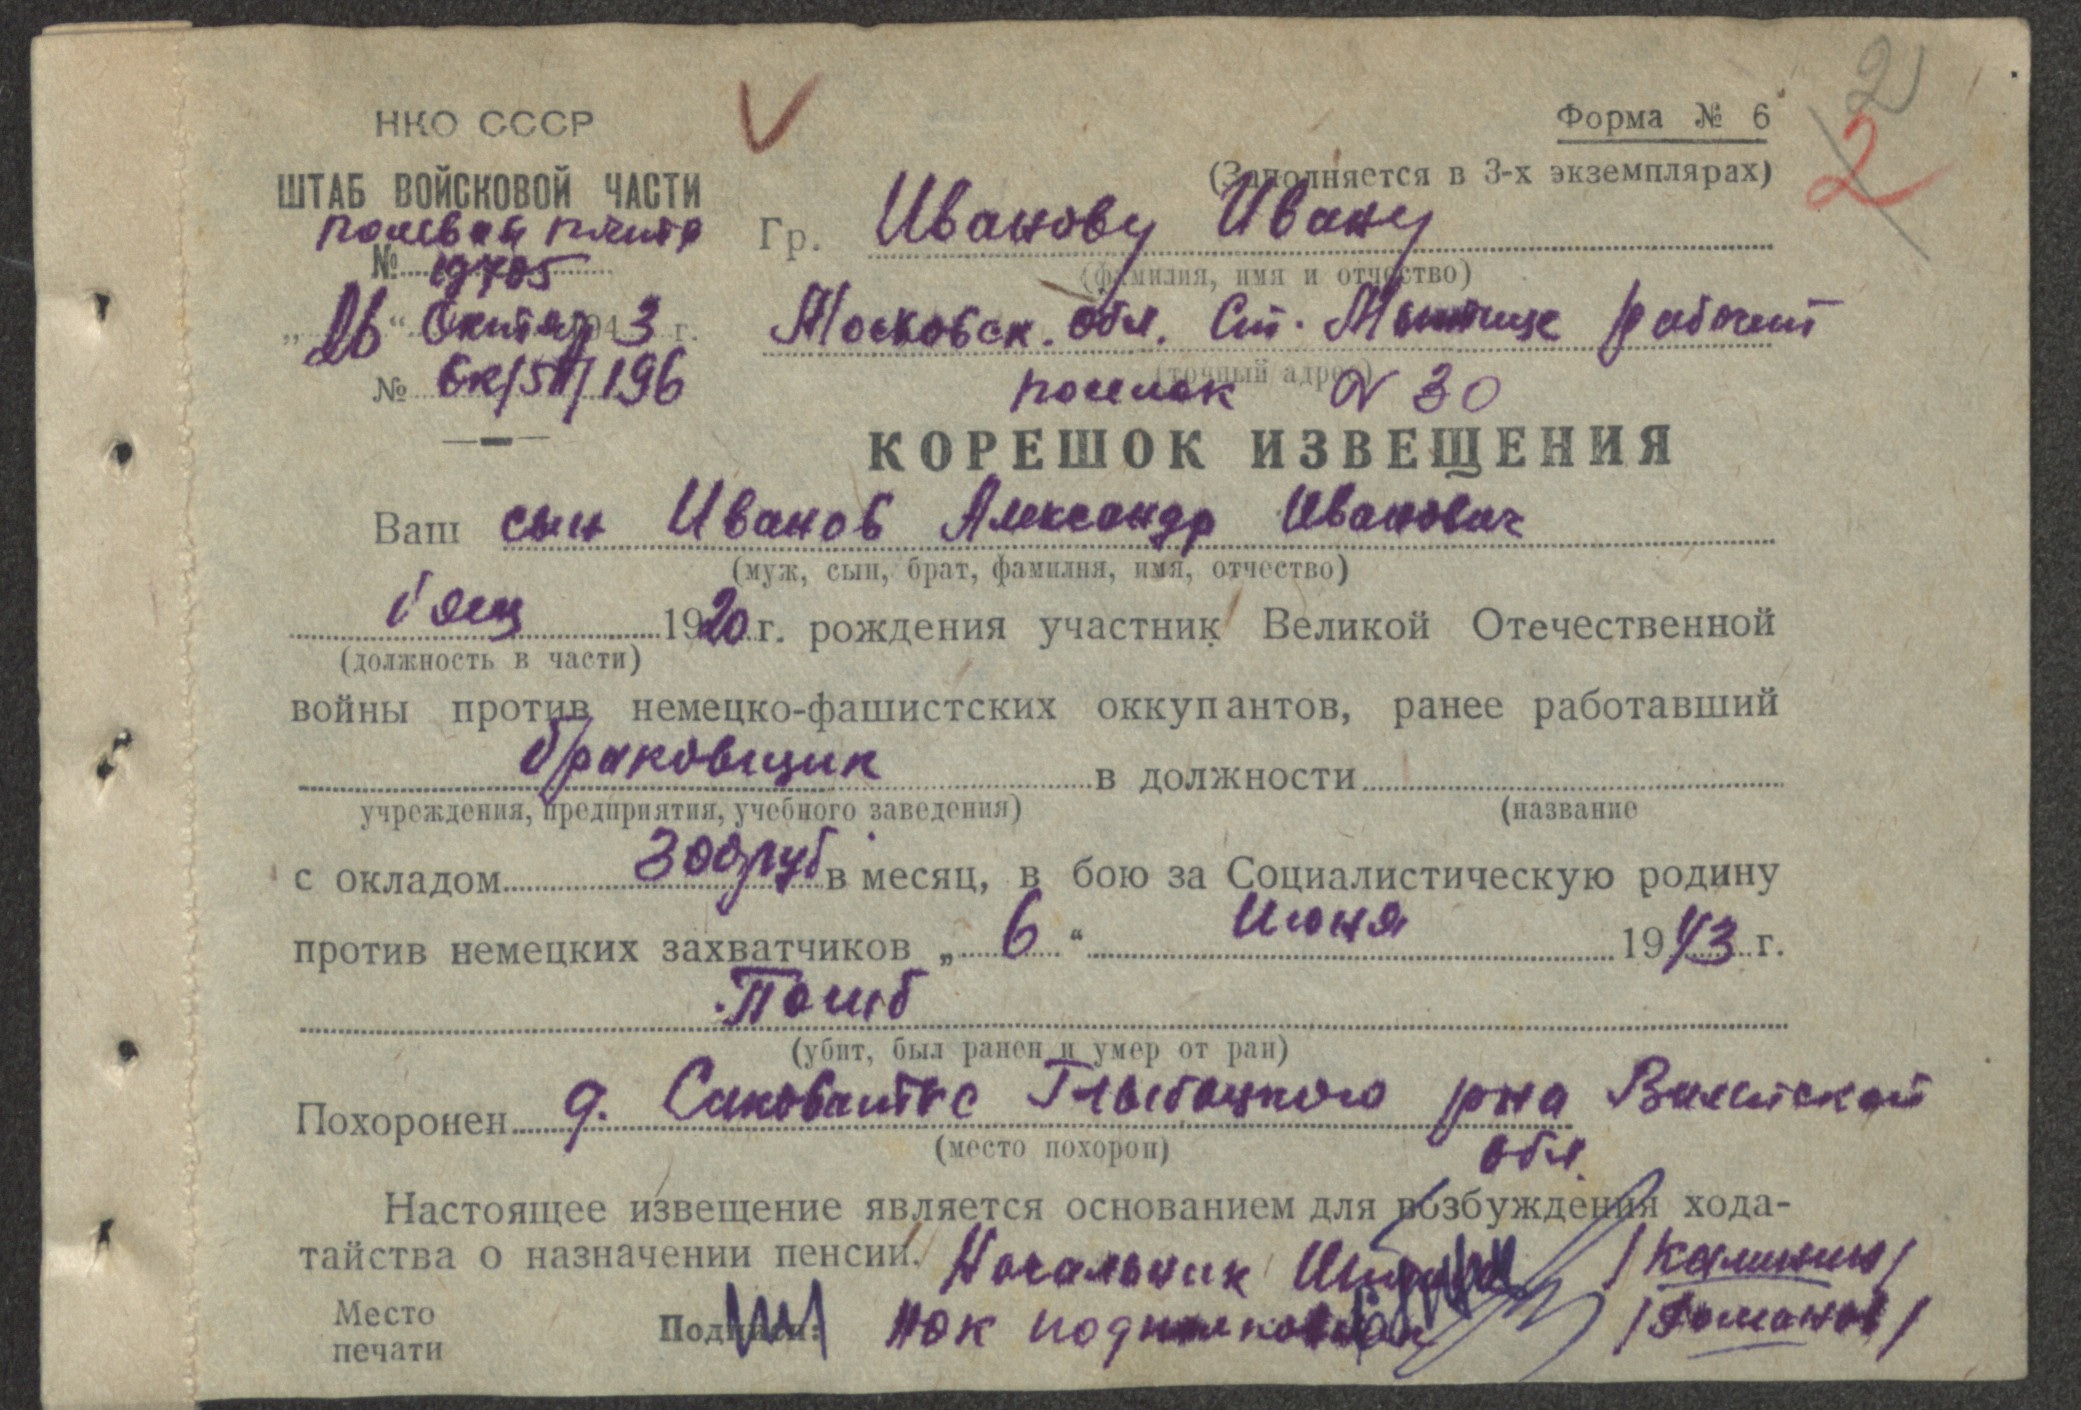 2
НКО СССР
Форма № 6
2
ШТАБ ВОЙСКОВОЙ ЧАСТИ
(Заполняется в 3-х экземплярах)
полевая почта
№ 19705
Гр. Иванову Ивану
(фамилия, имя и отчество)
„26“ Октяб 1943 г.
Московск. обл. Ст. Мытище рабочий
(точный адрес)
№ 196
поселок N 30
КОРЕШОК ИЗВЕЩЕНИЯ
Ваш сын Иванов Александр Иванович
(муж, сын, брат, фамилия, имя, отчество)
1920 г. рождения участник Великой Отечественной
(должность в части)
войны против немецко-фашистских оккупантов, ранее работавший
браковщик в должности
учреждения, предприятия, учебного заведения) (название
с окладом 300 руб в месяц, в бою за Социалистическую родину
против немецких захватчиков „6“ Июня 1943 г.
Погиб
(убит, был ранен и умер от ран)
Похоронен д. рна Вилейской
(место похорон)
обл
Настоящее извещение является основанием для возбуждения хода-
тайства о назначении пенсии.
Начальник Штаба /Калинин/
Место
печати
Подписи: НОК подполковник /Романов/